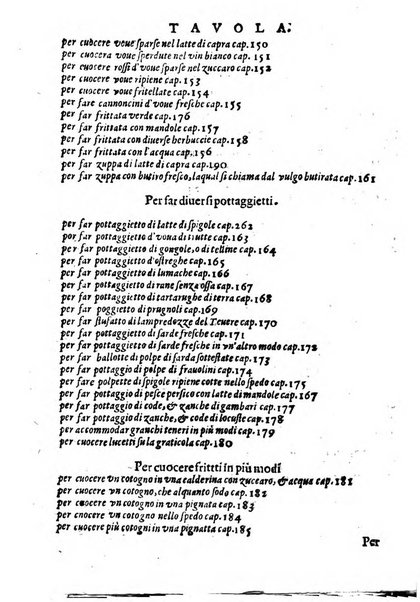 TAVOLA.
per cuocere voue sparse nel latte di capra cap. 150
per cuocera voue sperdute nel vin bianco cap. 151
per cuocere rossi d'voue sparse nel zuccaro cap. 152
per cuocere voue ripiene cap. 153
per cuocere voue fritellate cap. 154
per fare cannoncini d'voue fresche cap. 155
per far frittata verde cap. 176
per far frittata con mandole cap. 157
per far frittata con diuerse herbuccie cap. 158
per far frittata con l'acqua cap. 156
per far zuppa di latte di capra cap. 190
per far zuppa con butiro fresco, laqual si chiama dal vulgo butirata cap. 161
Per far diuersi pottaggietti.
per far pottaggietto di latte di spigole cap. 262
per far pottaggietto d'voua di tiutte cap. 163
per far pottaggietto di gongole, o di telline cap. 164
per far pottaggietto d'ostreghe cap. 165
per far pottaggietto di lumache cap. 166
per far pottaggietto di rane senza ossa cap. 167
per far pottaggietto di tartarughe di terra cap. 168
per far poggietto di prugnoli cap. 169
per far stufatto di lampredozze del Teuere cap. 170
per far pottaggietto di sarde fresche cap. 171
per far pottaggietto di sarde fresche in vn'altro modo cap. 172
per far ballotte di polpe di sarda sottestate cap. 173
per far pottaggio di polpe di frauolini cap. 174
per fare polpette di spigole ripiene cotte nello spedo cap. 175
per far pottaggio di pesce persico con latte di mandole cap. 167
per far pottaggio di code, & zanche di gambari cap. 177
per far pottaggio di zanche, & code di locuste cap. 178
per accommodar granchi teneri in più modi cap. 179
per cuocere lucetti su la graticola cap. 180
Per cuocere frittti in più modi
per cuocere vn cotogno in vna calderina con zuccaro, & acqua cap. 181
per cuocere vn cotogno, che alquanto sodo cap. 182
per cuocere vn cotogno in vna pignata cap. 183
per cnocere vn cotogno nello spedo cap. 184
per cuocere più cotogni in vna pignatta cap. 185
Per